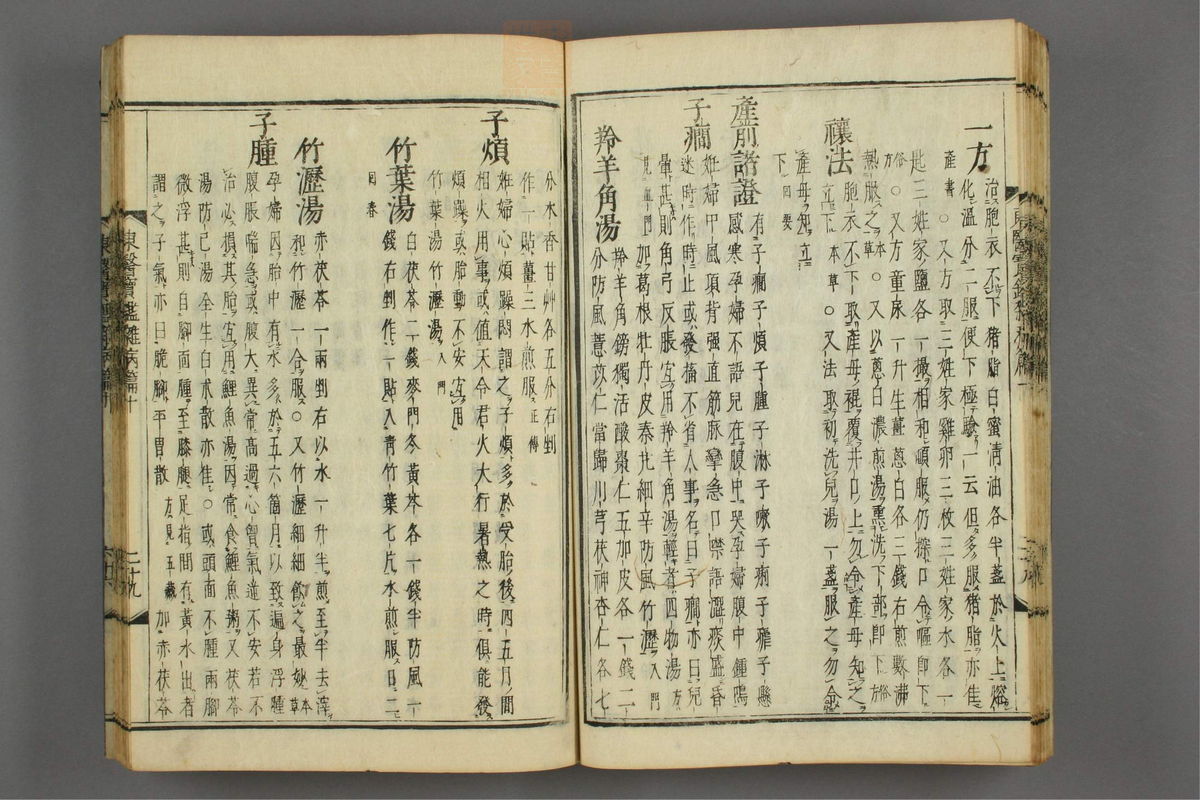 一方 治胞衣不下猪脂白蜜清油各半盞於火上熔
化温分二服便下極驗一云但多服猪脂亦佳
產書 ○又方取三姓家雞卵三枚三姓家水各一
匙三姓家鹽各一撮相和頓服仍探口令嘔即下
俗方 ○又方童尿一升生薑葱白各三錢右煎數沸
熱服之本草 ○又以葱白濃煎湯熏洗下部即下俗方
禳法 胞衣不下取產母裩覆井口上勿令產母知之
立下本草 ○又法取初洗兒湯一盞服之勿令
產母知立
下回要
產前諸證 有子癎子煩子腫子淋子嗽子痢子瘧子懸
感寒孕婦不語兒在腹中哭孕婦腹中鍾鳴
子癎 妊婦中風項背强直筋脉攣急口噤語澁痰盛昏
迷時作時止或發搐不省人事名曰子癎亦曰兒
暈甚則角弓反脹宜用羚羊角湯輕者四物湯方
見血門加葛根牡丹皮秦艽細辛防風竹瀝入門
羚羊角湯 羚羊角鎊獨活酸棗仁五加皮各一錢二
分防風薏苡仁當歸川芎茯神杏仁各七
分木香甘艸各五分右剉
作一貼薑三水煎服正傳
子煩 妊婦心煩躁悶謂之子煩多於受胎後四五月間
相火用事或值天令君火大行暑熱之時俱能發
煩躁或胎動不安宜用
竹葉湯竹瀝湯入門
竹葉湯 白茯苓二錢麥門冬黃芩各一錢半防風一
錢右剉作一貼入靑竹葉七片水煎服日二
回春
竹瀝湯 赤茯苓一兩剉右以水一升半煎至半去滓
和竹瀝一合服○又竹瀝細細飮之最妙本草
子腫 孕婦因胎中有水多於五六箇月以致遍身浮腫
腹脹喘急或腹大異常高過心胷氣逆不安若不
治必損其胎宜用鯉魚湯因常食鯉魚粥又茯苓
湯防己湯全生白朮散亦佳○或頭面不腫兩脚
微浮甚則自脚面腫至膝腿足指間有黃水出者
謂之子氣亦曰脆脚平胃散方見五臟加赤茯苓
東醫寶鑑雜病篇十
二十九